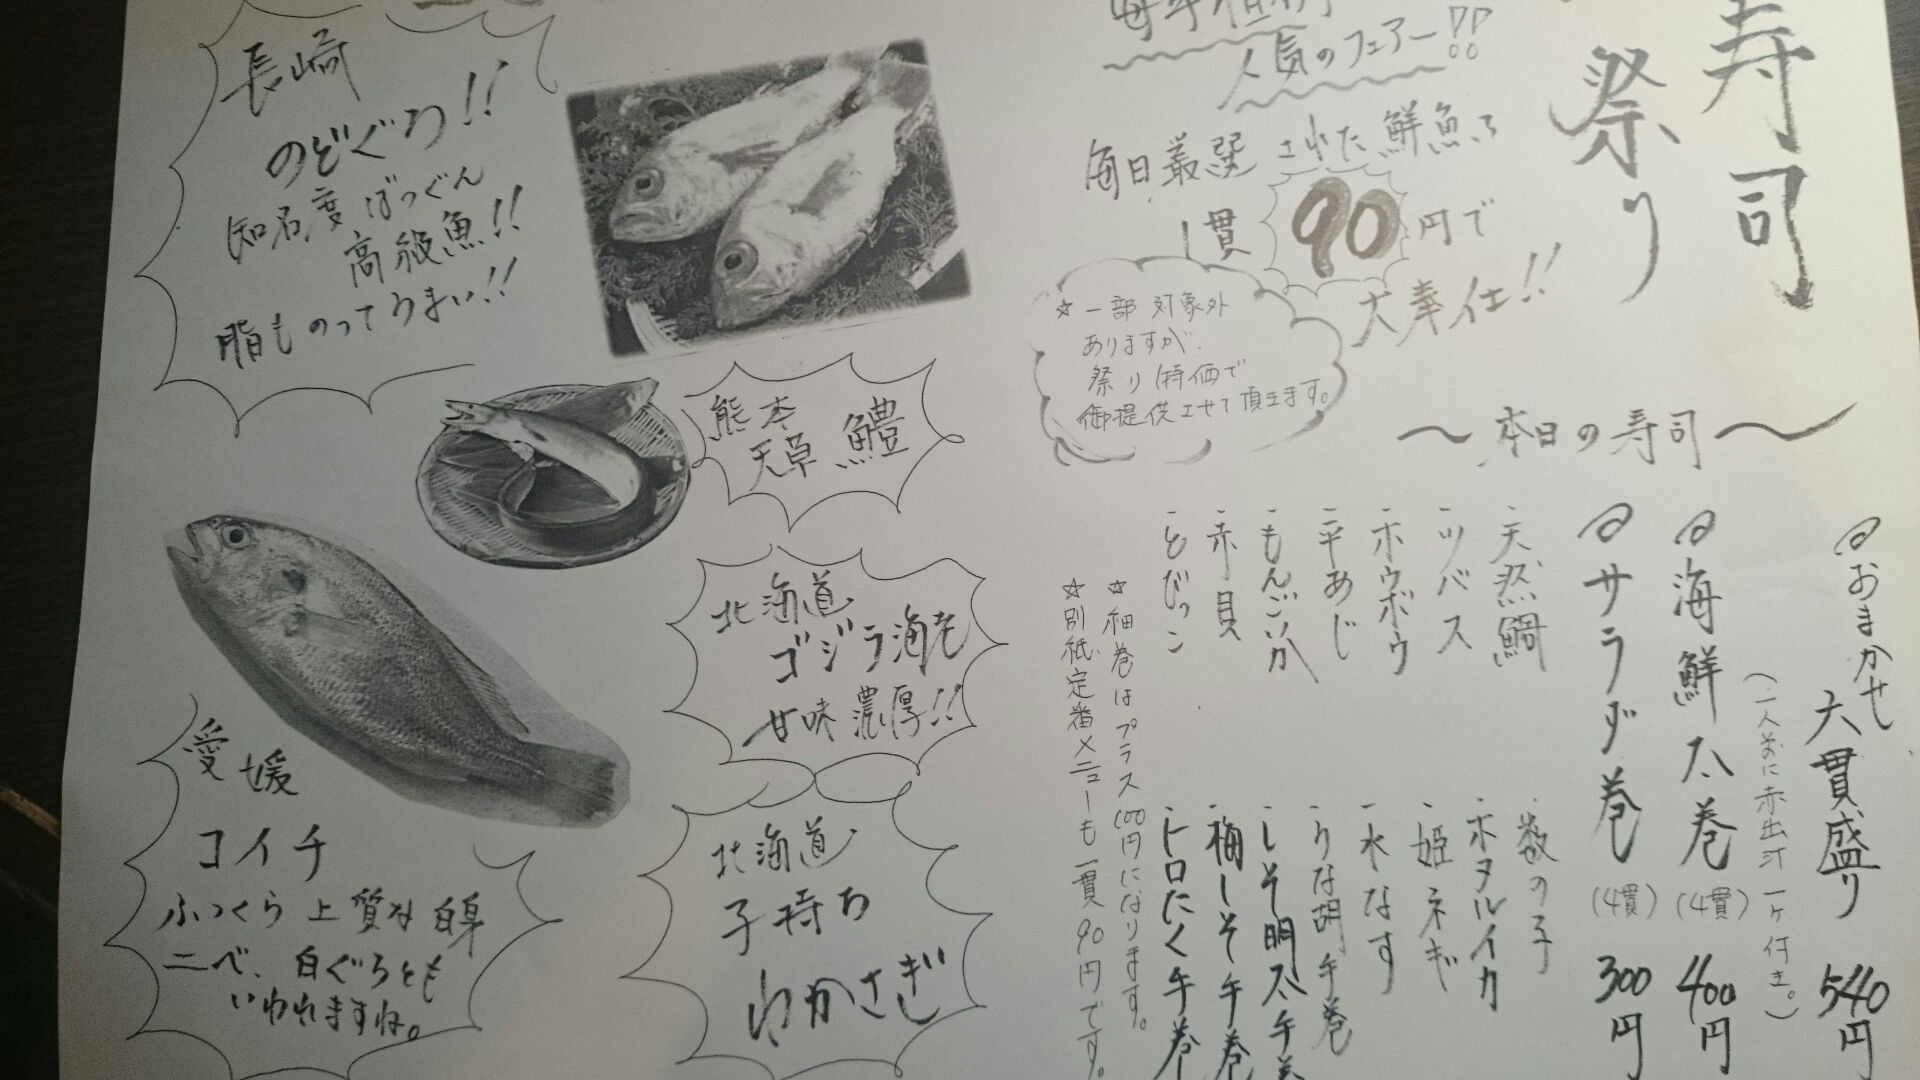 寿司
祭り
人気のフェアー!!
毎日厳選された鮮魚を
1貫90円で
大奉仕!!
☆一部対象外
ありますが、
祭り特価で
御提供させて頂きます。
〜本日の寿司〜
おまかせ
六貫盛り 540円
(一人前に赤出汁一ヶ付き。)
海鮮太巻 (4貫) 400円
サラダ巻 (4貫) 300円
・天然鯛
・ツバス
・ホウボウ
・平あじ
・もんごいか
・赤貝
・とびっこ
・数の子
・ホタルイカ
・姫ネギ
・水なす
・うな胡手巻
・しそ明太手巻
・梅しそ手巻
・トロたく手巻
☆細巻はプラス100円になります。
☆別紙定番メニューも一貫90円です。
長崎
のどぐろ!!
知名度ばつぐん
高級魚!!
脂ものってうまい!!
熊本
天草 鱧
北海道
ゴジラ海老
甘味濃厚!!
愛媛
コイチ
ふっくら上質な白身
ニベ、白ぐちとも
いわれますね。
北海道
子持ち
わかさぎ